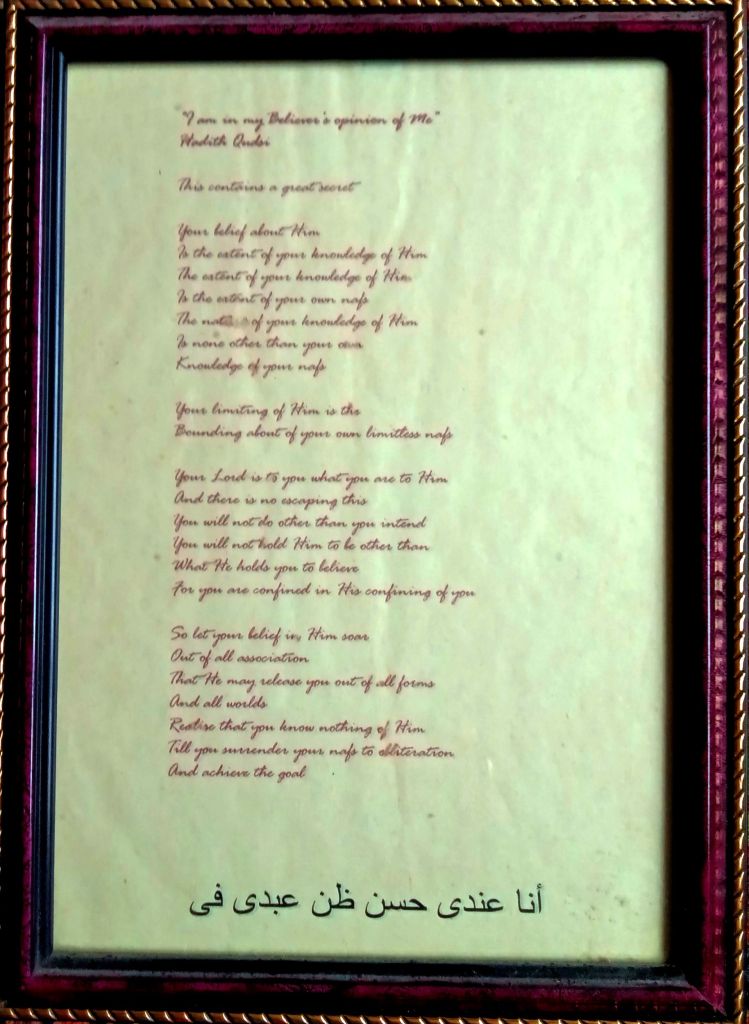 "I am in my Believer's opinion of Me"
Hadith Qudsi
This contains a great secret
Your belief about Him
Is the extent of your knowledge of Him
The extent of your knowledge of Him
Is the extent of your own nafs
The of your knowledge of Him
Is none other than your own
Knowledge of your nafs
Your limiting of Him is the
Bounding about of your own limitless nafs
Your Lord is to you what you are to Him
And there is no escaping this
You will not do other than you intend
You will not hold Him to be other than
What He holds you to believe
For you are confined in His confining of you
So let your belief in Him soar
Out of all association
That He may release you out of all forms
And all worlds
Realise that you know nothing of Him
Till you surrender your nafs to obliteration
And achieve the goal
أنا عندى حسن ظن عبدى فى